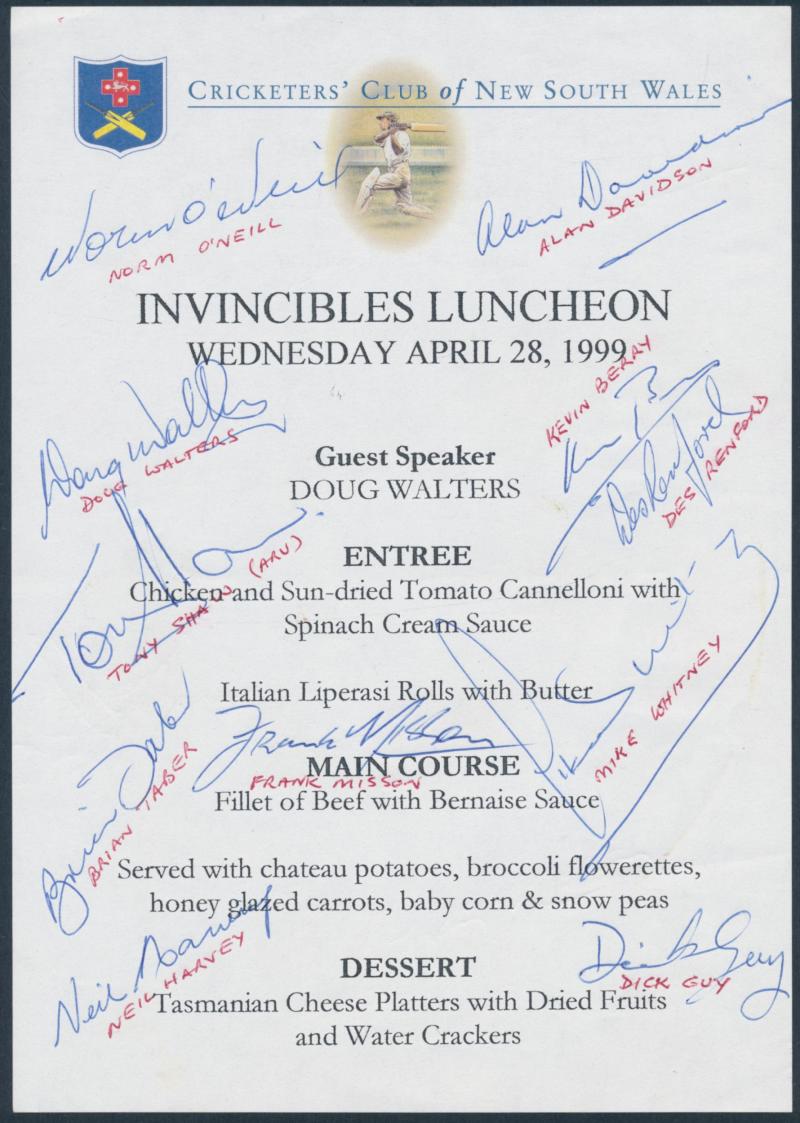 CRICKETERS' CLUB of NEW SOUTH WALES
Norm O'Neill
NORM O'NEILL
Alan Davidson
ALAN DAVIDSON
INVINCIBLES LUNCHEON
WEDNESDAY APRIL 28, 1999
KEVIN BERRY
Doug Walters
DOUG WALTERS
Guest Speaker
DOUG WALTERS
Des Renford
DES RENFORD
ENTREE
Chicken and Sun-dried Tomato Cannelloni with
Spinach Cream Sauce
TONY SHAW (ARU)
Italian Liperasi Rolls with Butter
MIKE WHITNEY
Frank Misson
FRANK MISSON
MAIN COURSE
Fillet of Beef with Bernaise Sauce
Brian Taber
BRIAN TABER
Served with chateau potatoes, broccoli flowerettes,
honey glazed carrots, baby corn & snow peas
Neil Harvey
NEIL HARVEY
Dick Guy
DICK GUY
DESSERT
Tasmanian Cheese Platters with Dried Fruits
and Water Crackers